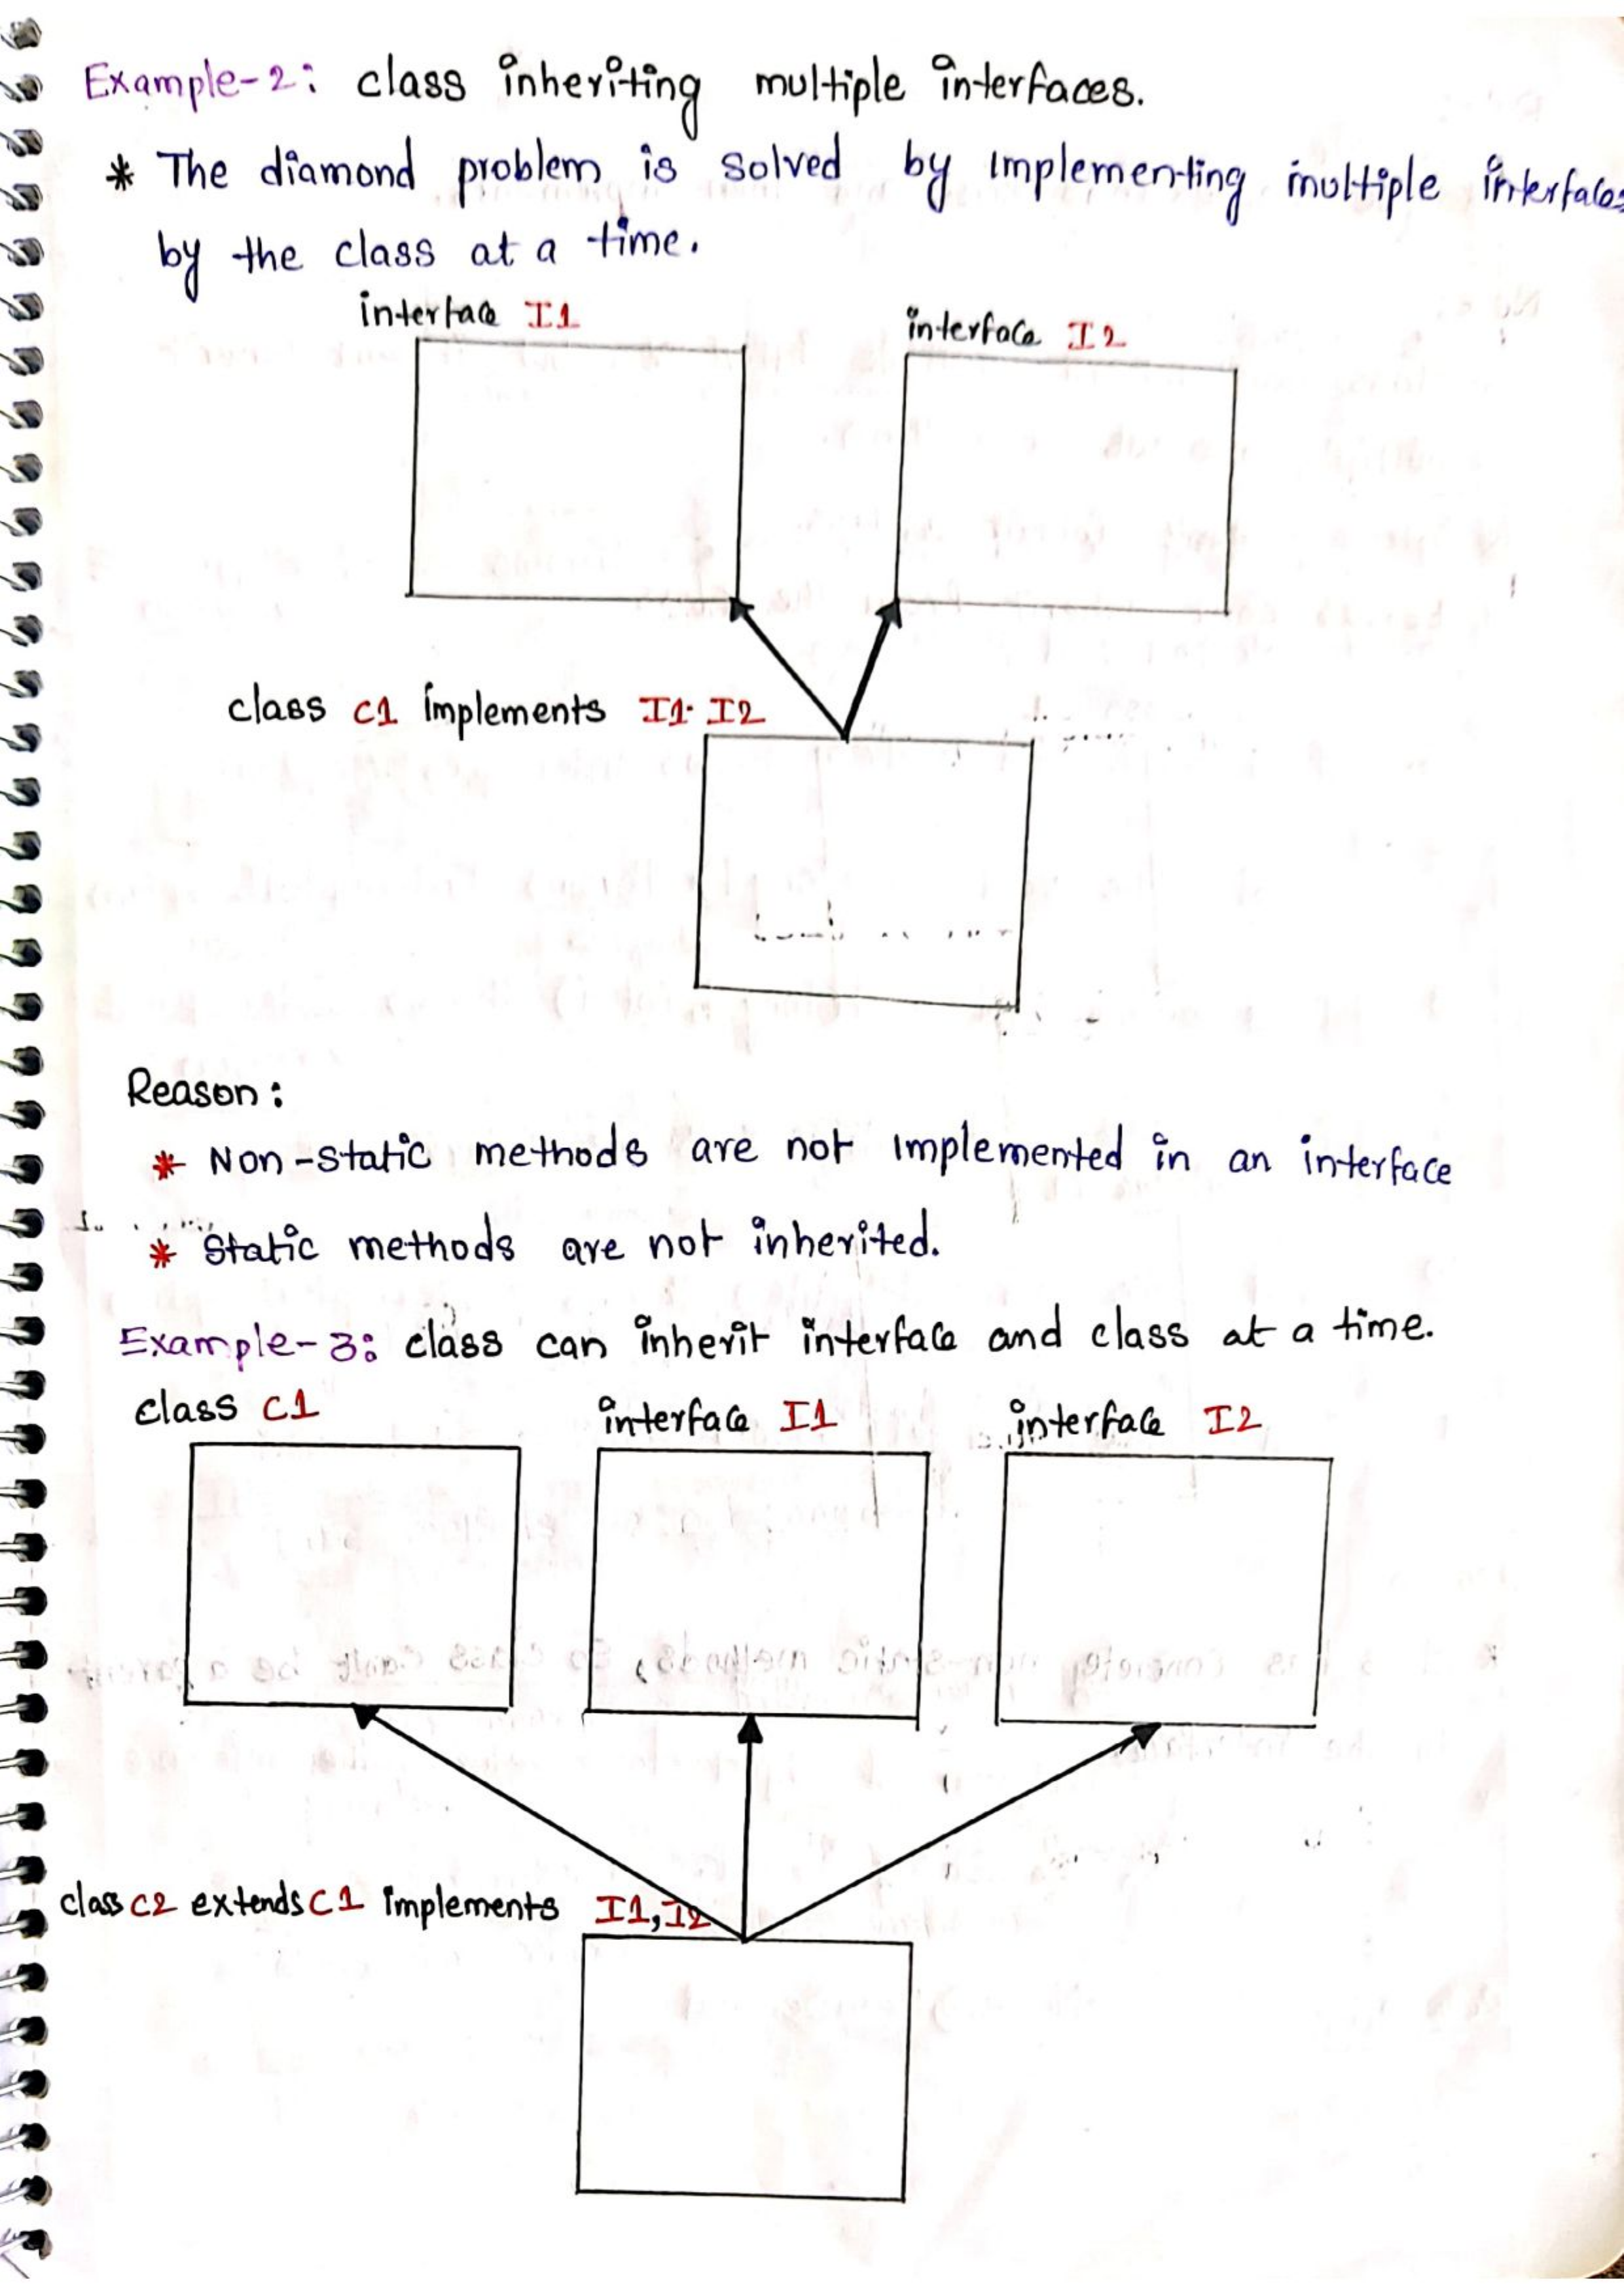 Example-2: class inheriting multiple interfaces.
* The diamond problem is solved by implementing multiple interfaces
by the class at a time.
interface I1
interface I2
class C1 implements I1. I2
Reason:
* Non-static methods are not implemented in an interface
* Static methods are not inherited.
Example-3: class can inherit interface and class at a time.
class C1 interface I1 interface I2
class C2 extends C1 implements I1, I2